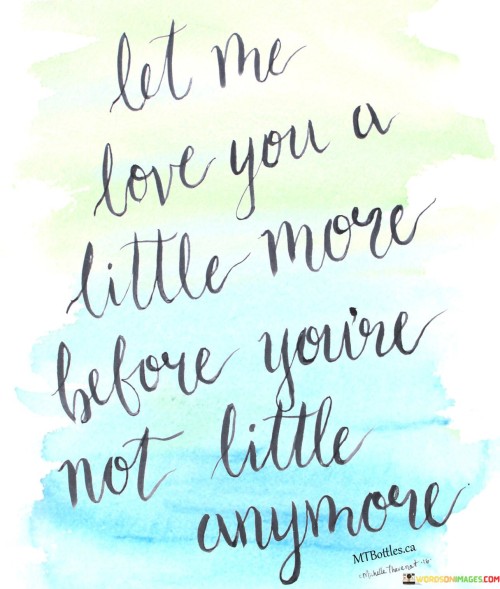 let me
love you a
little more
before you're
not little
anymore
MTBottles.ca
WORDSONIMAGES.COM